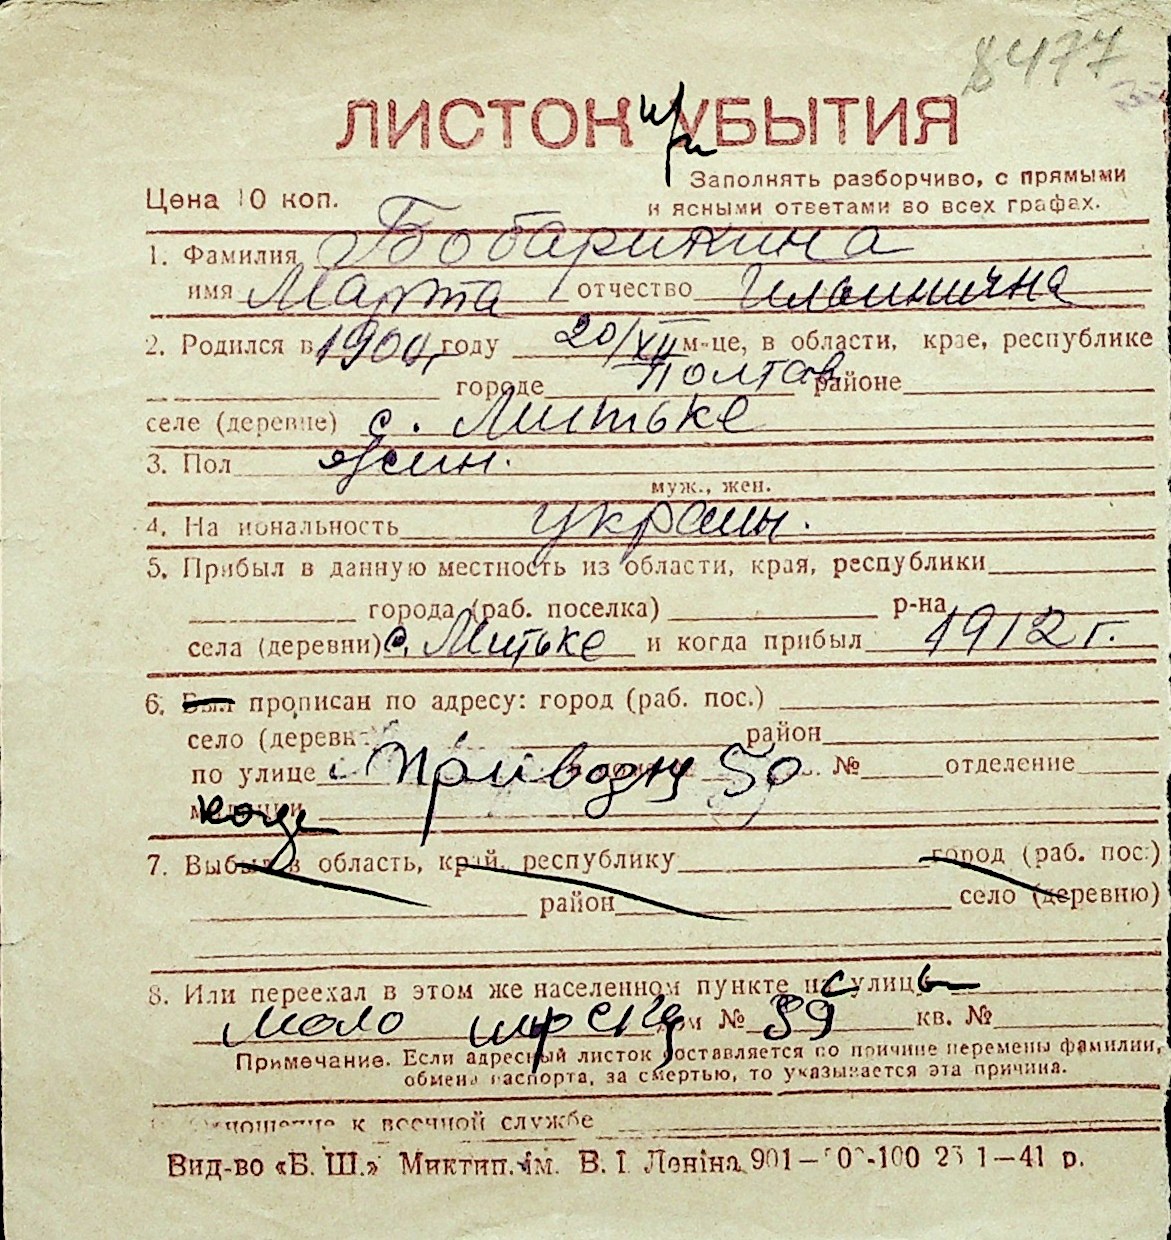 8477
ЛИСТОК УБЫТИЯ
при
Цена 10 коп.
Заполнять разборчиво, с прямыми
и ясными ответами во всех графах.
1. Фамилия Бобарикина
имя Марта отчество Ильинична
2. Родился в 1900 году 20/XII м-це, в области, крае, республике
городе Полтав районе
селе (деревне) с. Митьке
3. Пол жен.
муж., жен.
4. Национальность украин.
5. Прибыл в данную местность из области, края, республики
города (раб. поселка) р-на
села (деревни) с. Митьке и когда прибыл 1912 г.
6. Был прописан по адресу: город (раб. пос.)
село (деревн район
по улице 50 № отделение
7. Выбыл в область, край, республику город (раб. пос.)
район село (деревню)
8. Или переехал в этом же населенном пункте на с улицы
Мало дом № 39 кв. №
Примечание. Если адресный листок составляется по причине перемены фамилии,
обмена паспорта, за смертью, то указывается эта причина.
Отношение к военной службе
Вид-во «Б. Ш.» Миктип. ім. В. І. Леніна 901— -100 1—41 р.